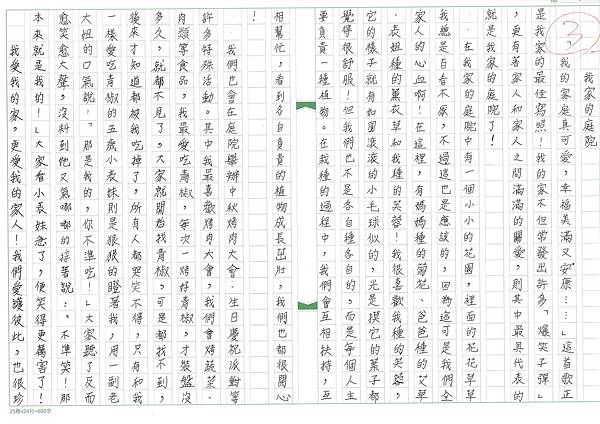 3
我的家庭
「我的家庭真可愛，幸福美滿又安康……」這首歌正
是我家的最佳寫照！我的家不但常發出許多「爆笑子彈」
，更有著家人和家人之間滿滿的關愛，則其中最具代表的
就是我家的庭院了！
在我家的庭院中有一個小小的花園，裡面的花花草草
我總是百看不厭，不過這也是應該的，因為這可是我們全
家人的心血啊！在這裡，有媽媽種的菊花、爸爸種的艾草
、表妞種的薰衣草和我種的芙蓉！我很喜歡我種的芙蓉，
它的樣子就有如圓滾滾的小毛球似的，光是摸它的葉子都
覺得很舒服！但我們也不是各自種各自的，而是每個人主
要負責一種植物。在栽種的過程中，我們會互相扶持，互
相幫忙，看到各自負責的植物成長茁壯，我們也都很開心
！
我們也會在庭院舉辦中秋烤肉大會、生日慶祝派對等
許多特殊活動。其中我最喜歡烤肉大會，我們會烤蔬菜、
肉類等食品，我最愛吃青椒，每次一烤好青椒，才裝盤沒
多久，就都不見了，大家就開始找青椒，可是都找不到，
後來才知道都被我吃掉了，所有人都哭笑不得，只有和我
一樣愛吃青椒的五歲小表妹則是狠狠的瞪著我，用一副老
大姐的口氣說：「那是我的，你不準吃！」大家聽了反而
愈笑愈大聲，沒料到他又氣嘟嘟的接著說：「不準笑！那
本來就是我的！」大家看小表妹怒了，便笑得更厲害了！
我愛我的家，更愛我的家人！我們愛護彼此，也很珍
25格x24行=600字